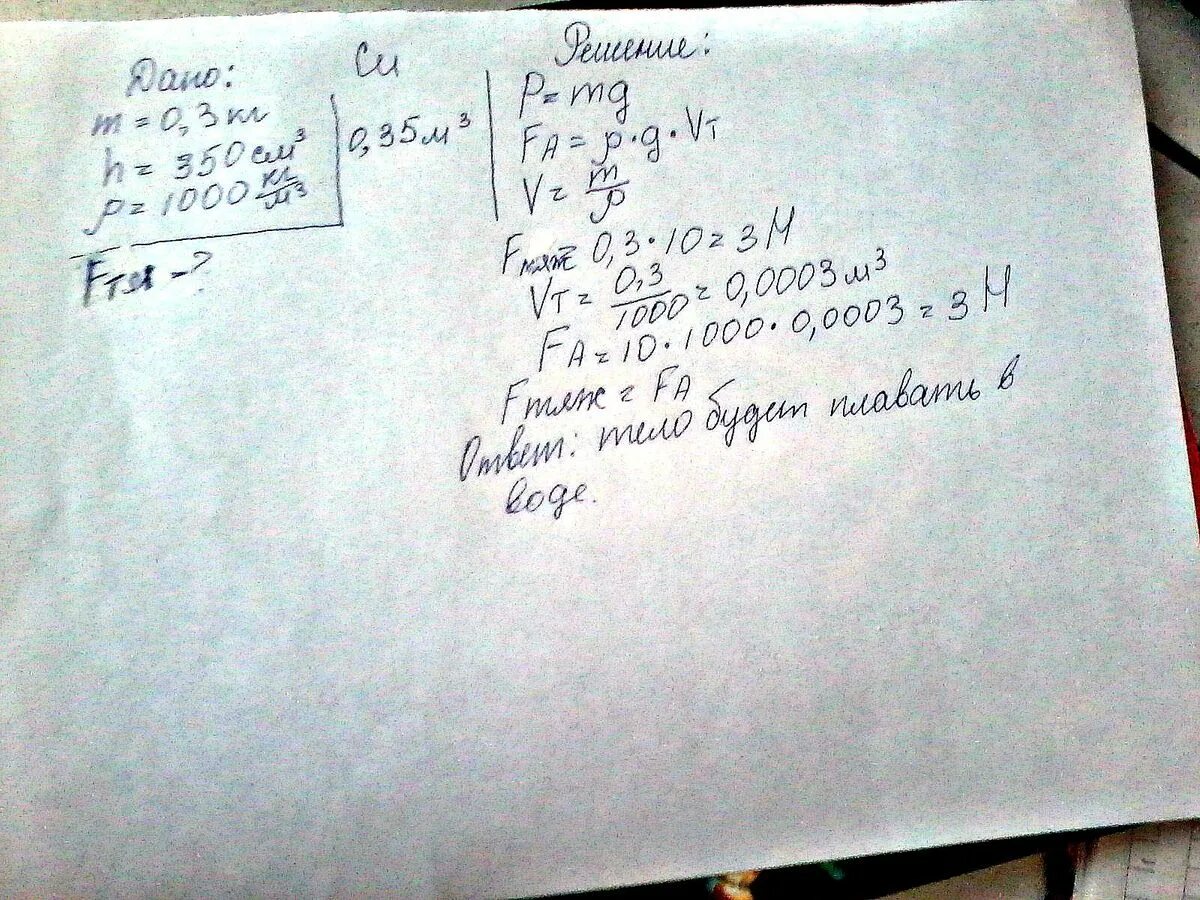 Дано:
m = 0,3 кг
h = 350 см³
ρ = 1000 кг/м³
Fтя - ?
Си
0,35 м³
Решение:
P = mg
FА = ρ · g · Vт
V = m/ρ
Fтяж = 0,3 · 10 = 3 Н
Vт = 0,3/1000 = 0,0003 м³
FА = 10 · 1000 · 0,0003 = 3 Н
Fтяж = FА
Ответ: тело будет плавать в
воде.